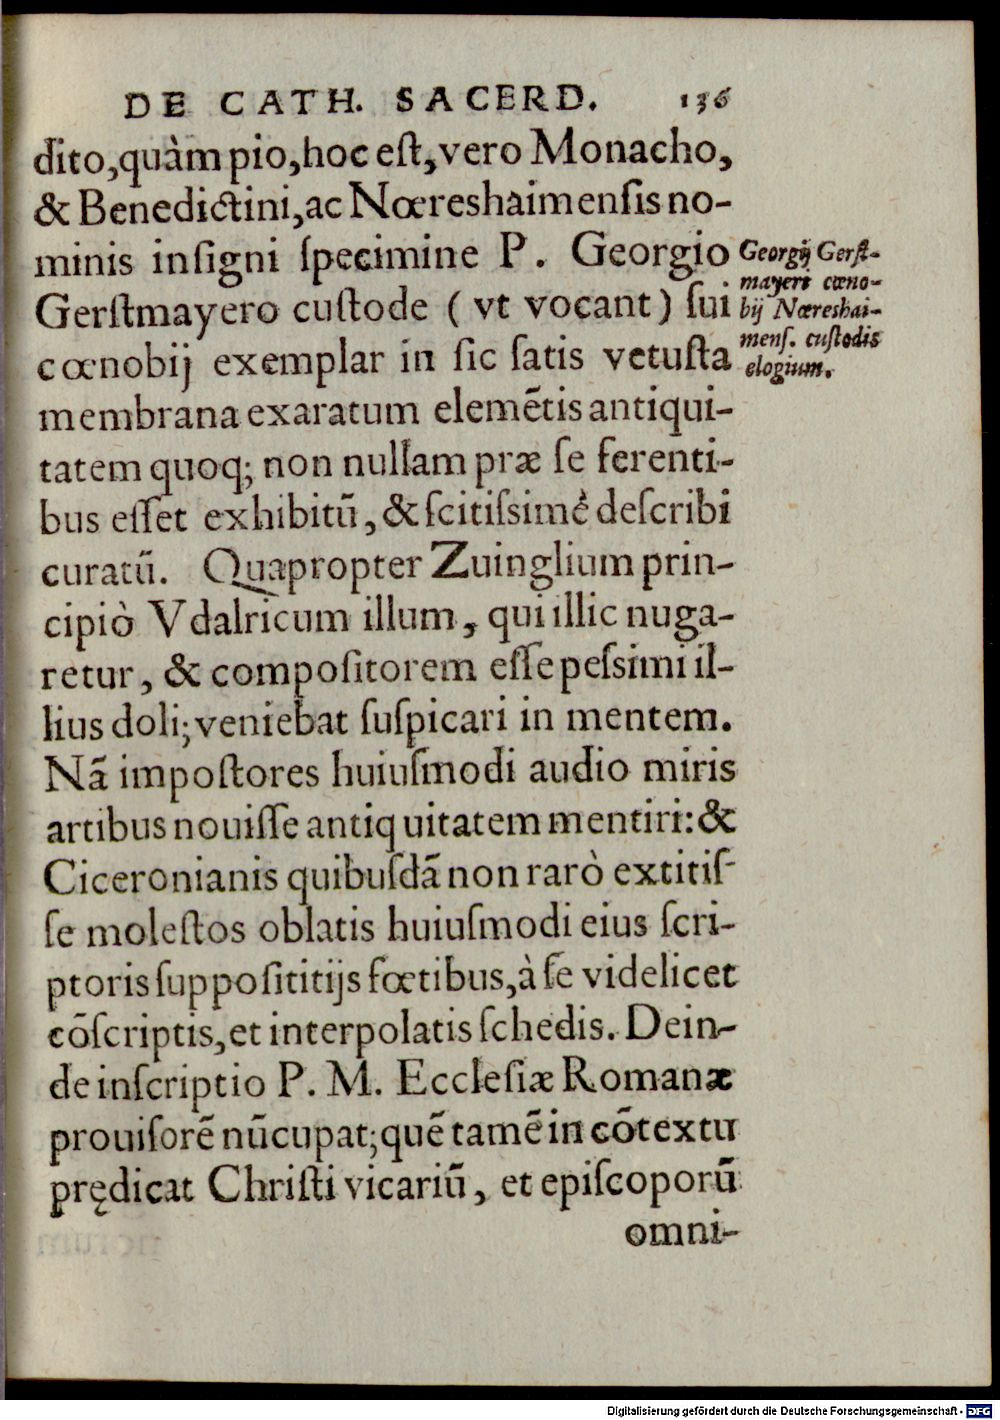 DE CATH. SACERD. 136
dito,quàm pio,hoc est,vero Monacho,
& Benedictini,ac Nœreshaimensis no-
minis insigni specimine P. Georgio
Gerstmayero custode ( vt vocant) sui
cœnobij exemplar in sic satis vetusta
membrana exaratum elemẽtis antiqui-
tatem quoq; non nullam præ se ferenti-
bus esset exhibitũ, & scitissimè describi
curatũ. Quapropter Zuinglium prin-
cipiò Vdalricum illum, qui illic nuga-
retur, & compositorem esse pessimi il-
lius doli; veniebat suspicari in mentem.
Nã impostores huiusmodi audio miris
artibus nouisse antiquitatem mentiri: &
Ciceronianis quibusdã non rarò extitis
se molestos oblatis huiusmodi eius scri-
ptoris supposititijs fœtibus,à se videlicet
cõscriptis, et interpolatis schedis. Dein-
de inscriptio P. M. Ecclesiæ Romanæ
prouisorẽ nũcupat; quẽ tamẽ in cõtextu
prędicat Christi vicariũ, et episcoporũ
omni-
Georgij Gerst-
mayeri cœno-
bij Nœreshai-
mens. custodis
elogium.
Digitalisierung gefördert durch die Deutsche Forschungsgemeinschaft - DFG